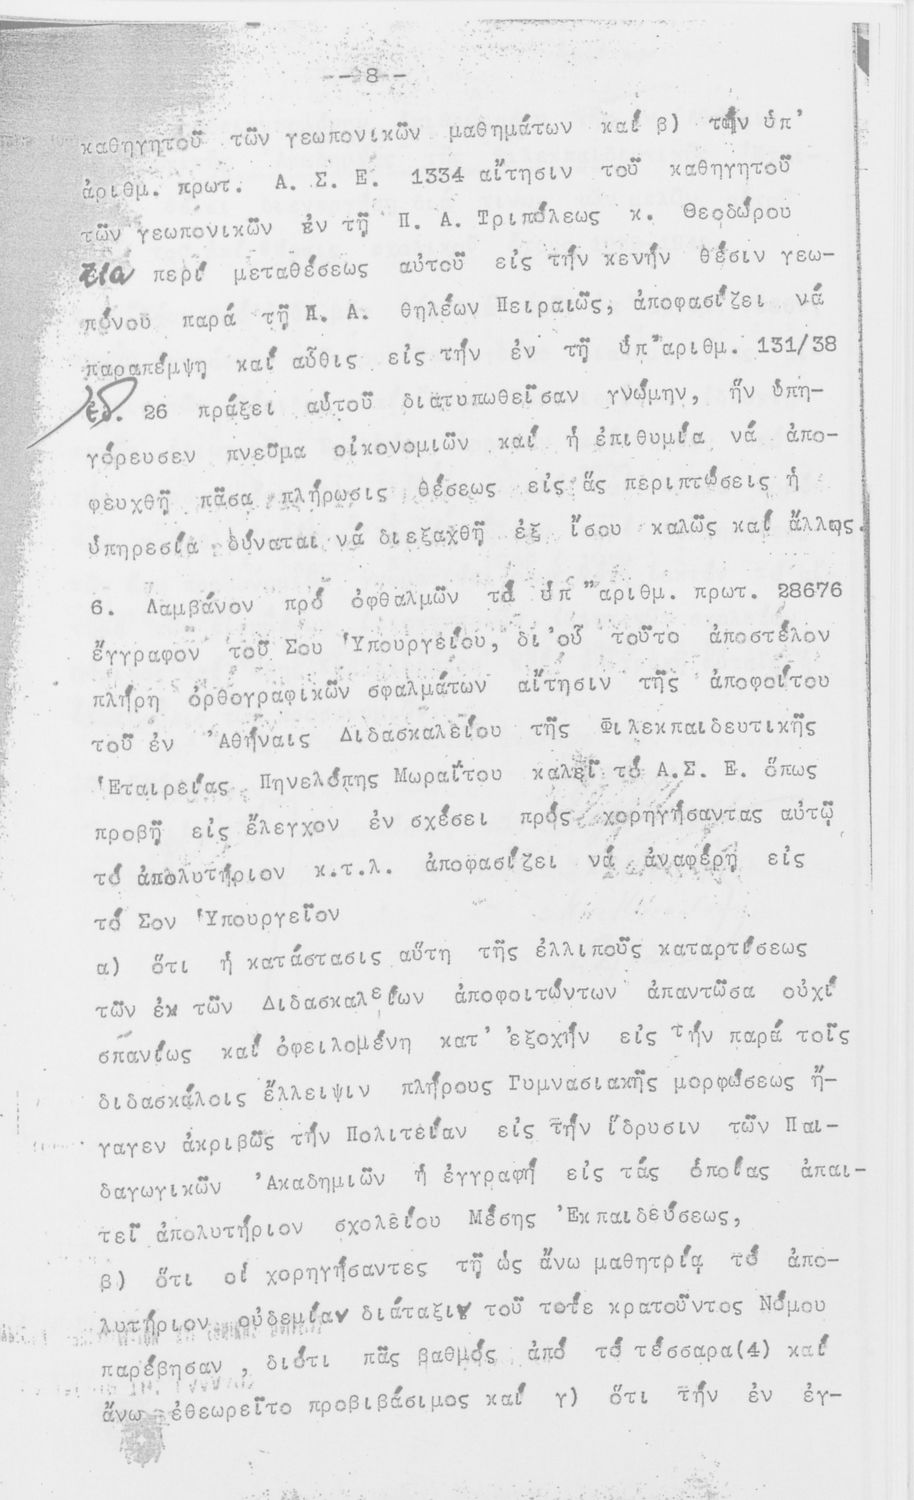 - 8 -
καθηγητοῦ τῶν γεωπονικῶν μαθημάτων καί β) τήν ὑπ'
ἀριθμ. πρωτ. Α. Σ. Ε. 1334 αἴτησιν τοῦ καθηγητοῦ
τῶν γεωπονικῶν ἐν τῇ Π. Α. Τριπόλεως κ. Θεοδώρου
περί μεταθέσεως αὐτοῦ εἰς τήν κενήν θέσιν γεω-
πόνου παρά τῇ Π. Α. θηλέων Πειραιῶς, ἀποφασίζει νά
παραπέμψῃ καί αὖθις εἰς τήν ἐν τῇ ὑπ'ἀριθμ. 131/38
ἐδ. 26 πράξει αὐτοῦ διατυπωθεῖσαν γνώμην, ἥν ὑπη-
γόρευσεν πνεῦμα οἰκονομιῶν καί ἡ ἐπιθυμία νά ἀπο-
φευχθῇ πᾶσα πλήρωσις θέσεως εἰς ἅς περιπτώσεις ἡ
ὑπηρεσία δύναται νά διεξαχθῇ ἐξ ἴσου καλῶς καί ἄλλως.
6. Λαμβάνον πρό ὀφθαλμῶν τό ὑπ'ἀριθμ. πρωτ. 28676
ἔγγραφον τοῦ Σου Ὑπουργείου, δι'οὗ τοῦτο ἀποστέλον
πλήρη ὀρθογραφικῶν σφαλμάτων αἴτησιν τῆς ἀποφοίτου
τοῦ ἐν Ἀθήναις Διδασκαλείου τῆς Φιλεκπαιδευτικῆς
Ἑταιρείας Πηνελόπης Μωραΐτου καλεῖ τό Α.Σ. Ε. ὅπως
προβῇ εἰς ἔλεγχον ἐν σχέσει πρός χορηγήσαντας αὐτῷ
τό ἀπολυτήριον κ.τ.λ. ἀποφασίζει νά ἀναφέρῃ εἰς
τό Σον Ὑπουργεῖον
α) ὅτι ἡ κατάστασις αὕτη τῆς ἐλλιποῦς καταρτίσεως
τῶν ἐκ τῶν Διδασκαλείων ἀποφοιτώντων ἀπαντῶσα οὐχί
σπανίως καί ὀφειλομένη κατ' ἐξοχήν εἰς τήν παρά τοῖς
διδασκάλοις ἔλλειψιν πλήρους Γυμνασιακῆς μορφώσεως ἤ-
γαγεν ἀκριβῶς τήν Πολιτείαν εἰς τήν ἵδρυσιν τῶν Παι-
δαγωγικῶν Ἀκαδημιῶν ἡ ἐγγραφή εἰς τάς ὁποίας ἀπαι-
τεῖ ἀπολυτήριον σχολείου Μέσης Ἐκπαιδεύσεως,
β) ὅτι οἱ χορηγήσαντες τῇ ὡς ἄνω μαθητρίᾳ τό ἀπο-
λυτήριον οὐδεμίαν διάταξιν τοῦ τότε κρατοῦντος Νόμου
παρέβησαν, διότι πᾶς βαθμός ἀπό τό τέσσαρα(4) καί
ἄνω ἐθεωρεῖτο προβιβάσιμος καί γ) ὅτι τήν ἐν ἐγ-